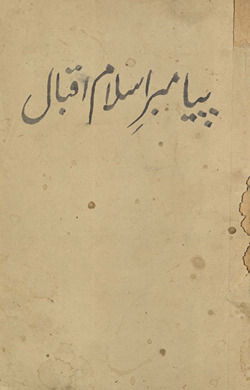 پیامبرِ اسلام اقبال